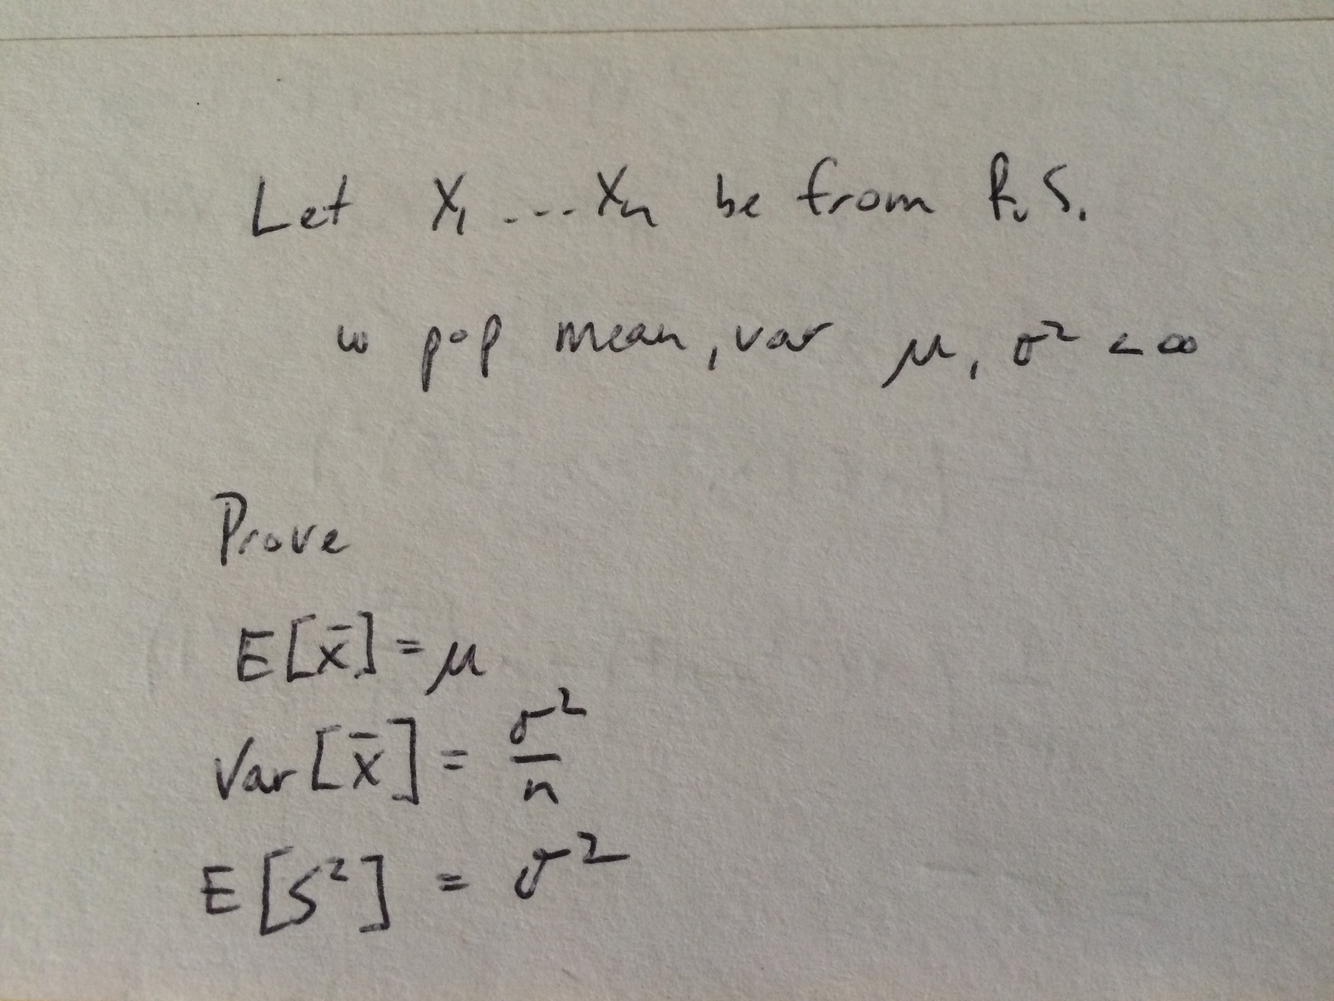 Let X₁ ... Xₙ be from R.S.
w pop mean, var μ, σ² < ∞
Prove
E[x̄] = μ
Var[x̄] = σ²/n
E[S²] = σ²